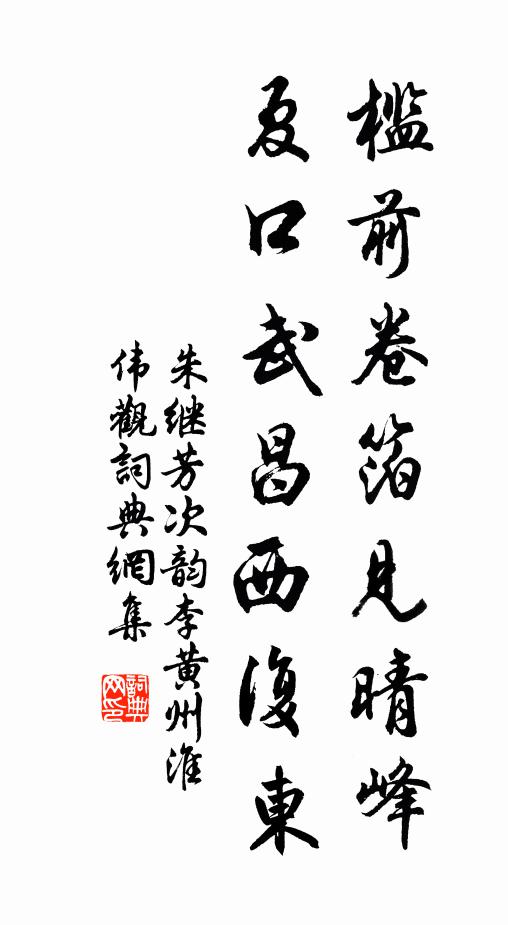 槛前卷箔見晴峰
夏口武昌西復東
朱继芳次韵李黄州淮
伟觀詞典網集
詞典网印